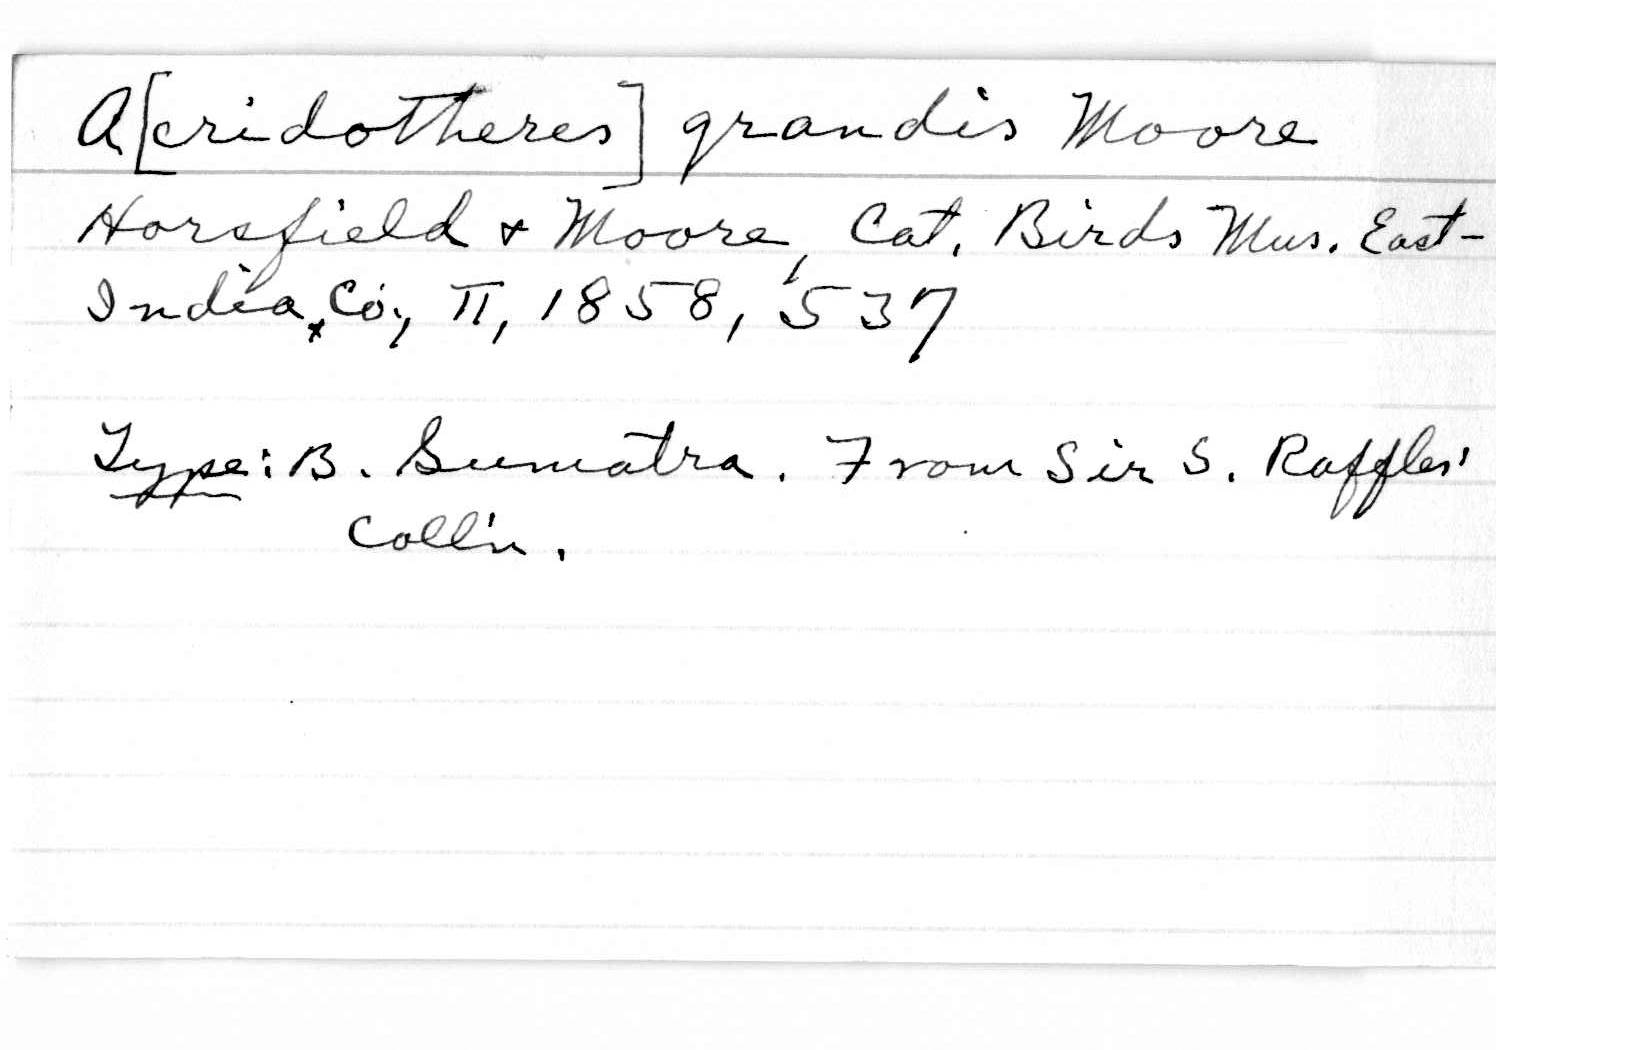 A[cridotheres] grandis Moore
Horsfield & Moore, Cat. Birds Mus. East-
India Co., II, 1858, 537
Type: B. Sumatra. From Sir S. Raffles'
Coll'n.